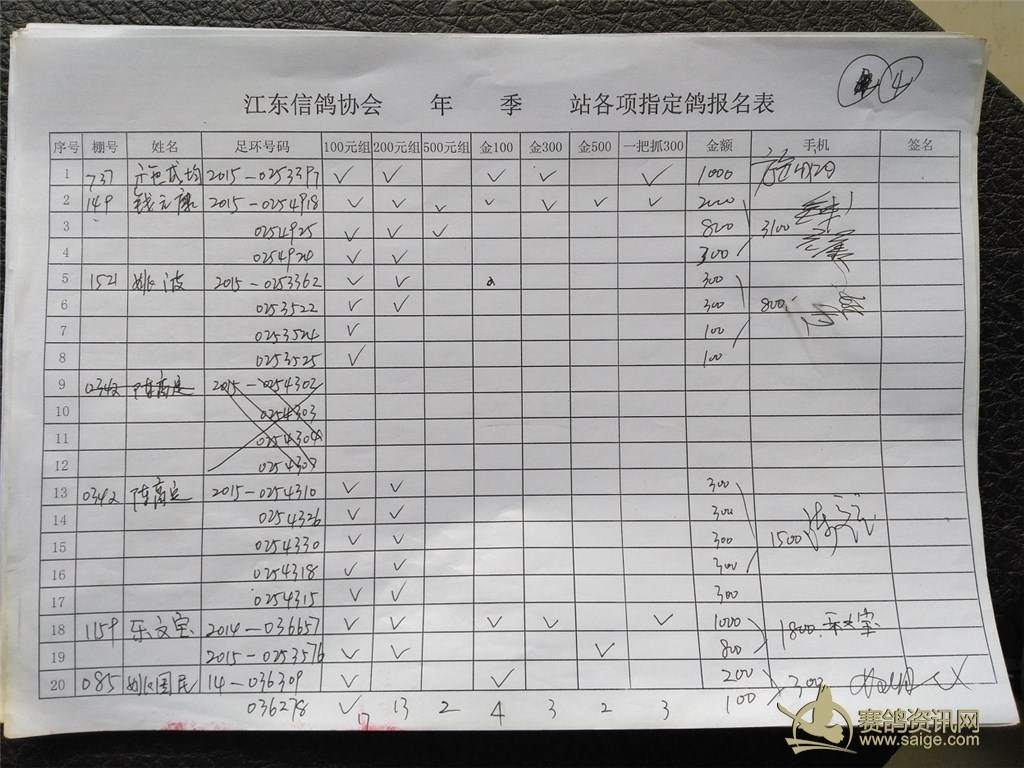 4
江东信鸽协会 年 季 站各项指定鸽报名表
序号 棚号 姓名 足环号码 100元组 200元组 500元组 金100 金300 金500 一把抓300 金额 手机 签名
1 737 2015-0253397 ✓ ✓ ✓ ✓ ✓ 1000
2 149 钱立康 2015-0254918 ✓ ✓ ✓ ✓ ✓ ✓ ✓ 2000
3 0254925 ✓ ✓ ✓ 800 3100
4 0254924 ✓ ✓ 300
5 1521 姚波 2015-0253362 ✓ ✓ 300
6 0253522 ✓ ✓ 300 800
7 0253524 ✓ 100
8 0253525 ✓ 100
9 0342 陈高定 2015-0254302
10 0254303
11 0254304
12 0254307
13 0342 陈高定 2015-0254310 ✓ ✓ 300
14 0254326 ✓ ✓ 300
15 0254330 ✓ ✓ 300 1500
16 0254318 ✓ ✓ 300
17 0254315 ✓ ✓ 300
18 1159 乐文宝 2014-036657 ✓ ✓ ✓ ✓ ✓ 1000 1800 乐文宝
19 2015-0253576 ✓ ✓ ✓ 800
20 085 姚国民 14-036309 ✓ ✓ 200 300
036278 ✓ 17 13 2 4 3 2 3 100
赛鸽资讯网
www.saige.com